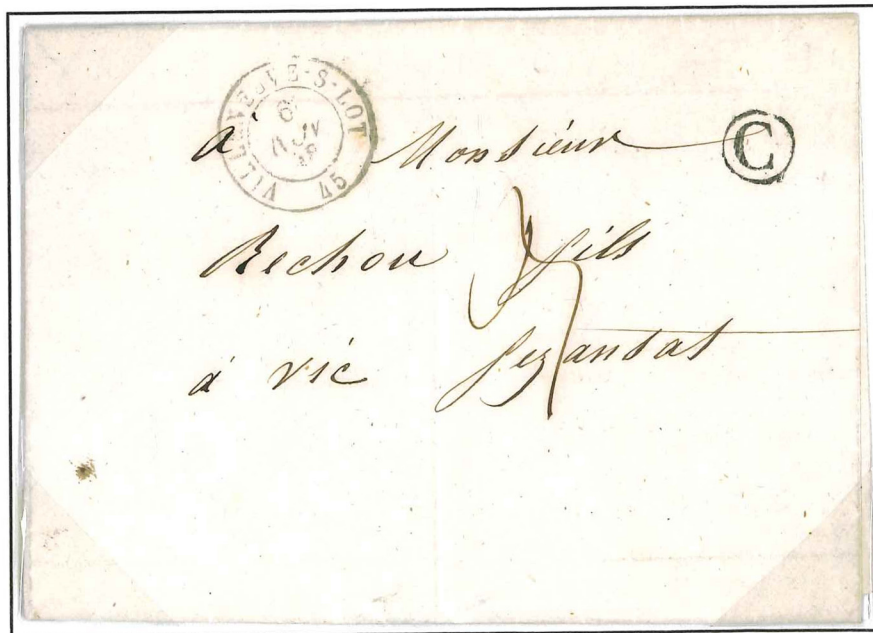 VILLENEUVE-S-LOT
6
JUIN
48
45
C
à Monsieur
Bechou fils
à vic fezansat